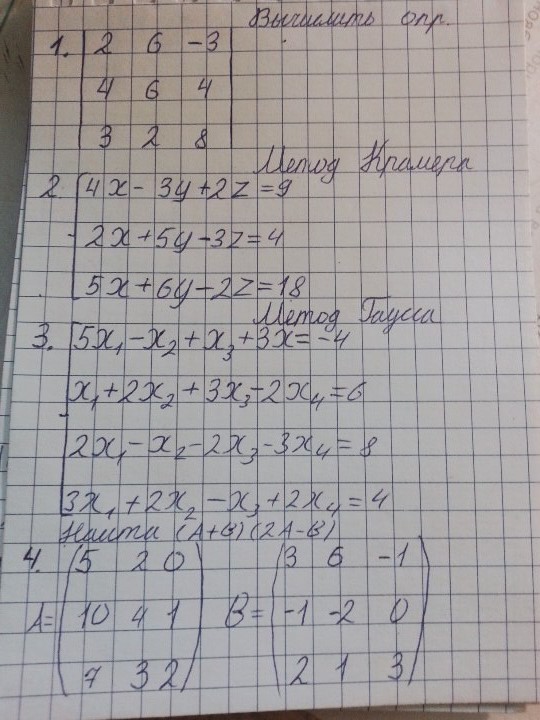 Вычислить опр.
1. |2 6 -3|
|4 6 4|
|3 2 8|
Метод Крамера
2. {4x-3y+2z=9
2x+5y-3z=4
5x+6y-2z=18
Метод Гаусса
3. {5x₁-x₂+x₃+3x=-4
x₁+2x₂+3x₃-2x₄=6
2x₁-x₂-2x₃-3x₄=8
3x₁+2x₂-x₃+2x₄=4
Найти (A+B)(2A-B)
4. (5 2 0) (3 6 -1)
A= (10 4 1) B= (-1 -2 0)
(7 3 2) (2 1 3)